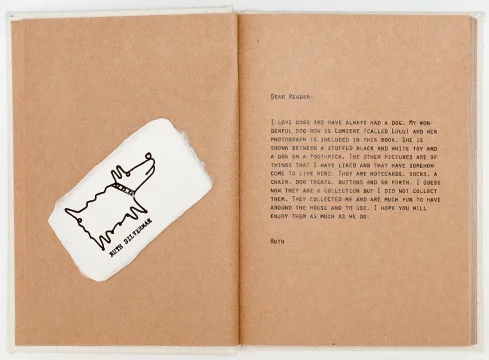 RUTH SILVERMAN
DEAR READER-
I LOVE DOGS AND HAVE ALWAYS HAD A DOG. MY WON-
DERFUL DOG NOW IS LUMIERE (CALLED LULU) AND HER
PHOTOGRAPH IS INCLUDED IN THIS BOOK. SHE IS
SHOWN BETWEEN A STUFFED BLACK AND WHITE TOY AND
A DOG ON A TOOTHPICK. THE OTHER PICTURES ARE OF
THINGS THAT I HAVE LIKED AND THAT HAVE SOMEHOW
COME TO LIVE HERE: THEY ARE NOTECARDS, SOCKS, A
CHAIR, DOG TREATS, BUTTONS AND SO FORTH. I GUESS
NOW THEY ARE A COLLECTION BUT I DID NOT COLLECT
THEM. THEY COLLECTED ME AND ARE MUCH FUN TO HAVE
AROUND THE HOUSE AND TO USE. I HOPE YOU WILL
ENJOY THEM AS MUCH AS WE DO.
RUTH